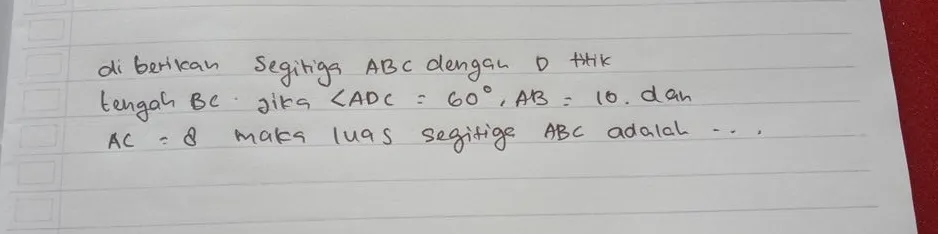 diberikan segitiga ABC dengan D titik
tengah BC. jika <ADC = 60°, AB = 10. dan
AC = 8 maka luas segitiga ABC adalah ....